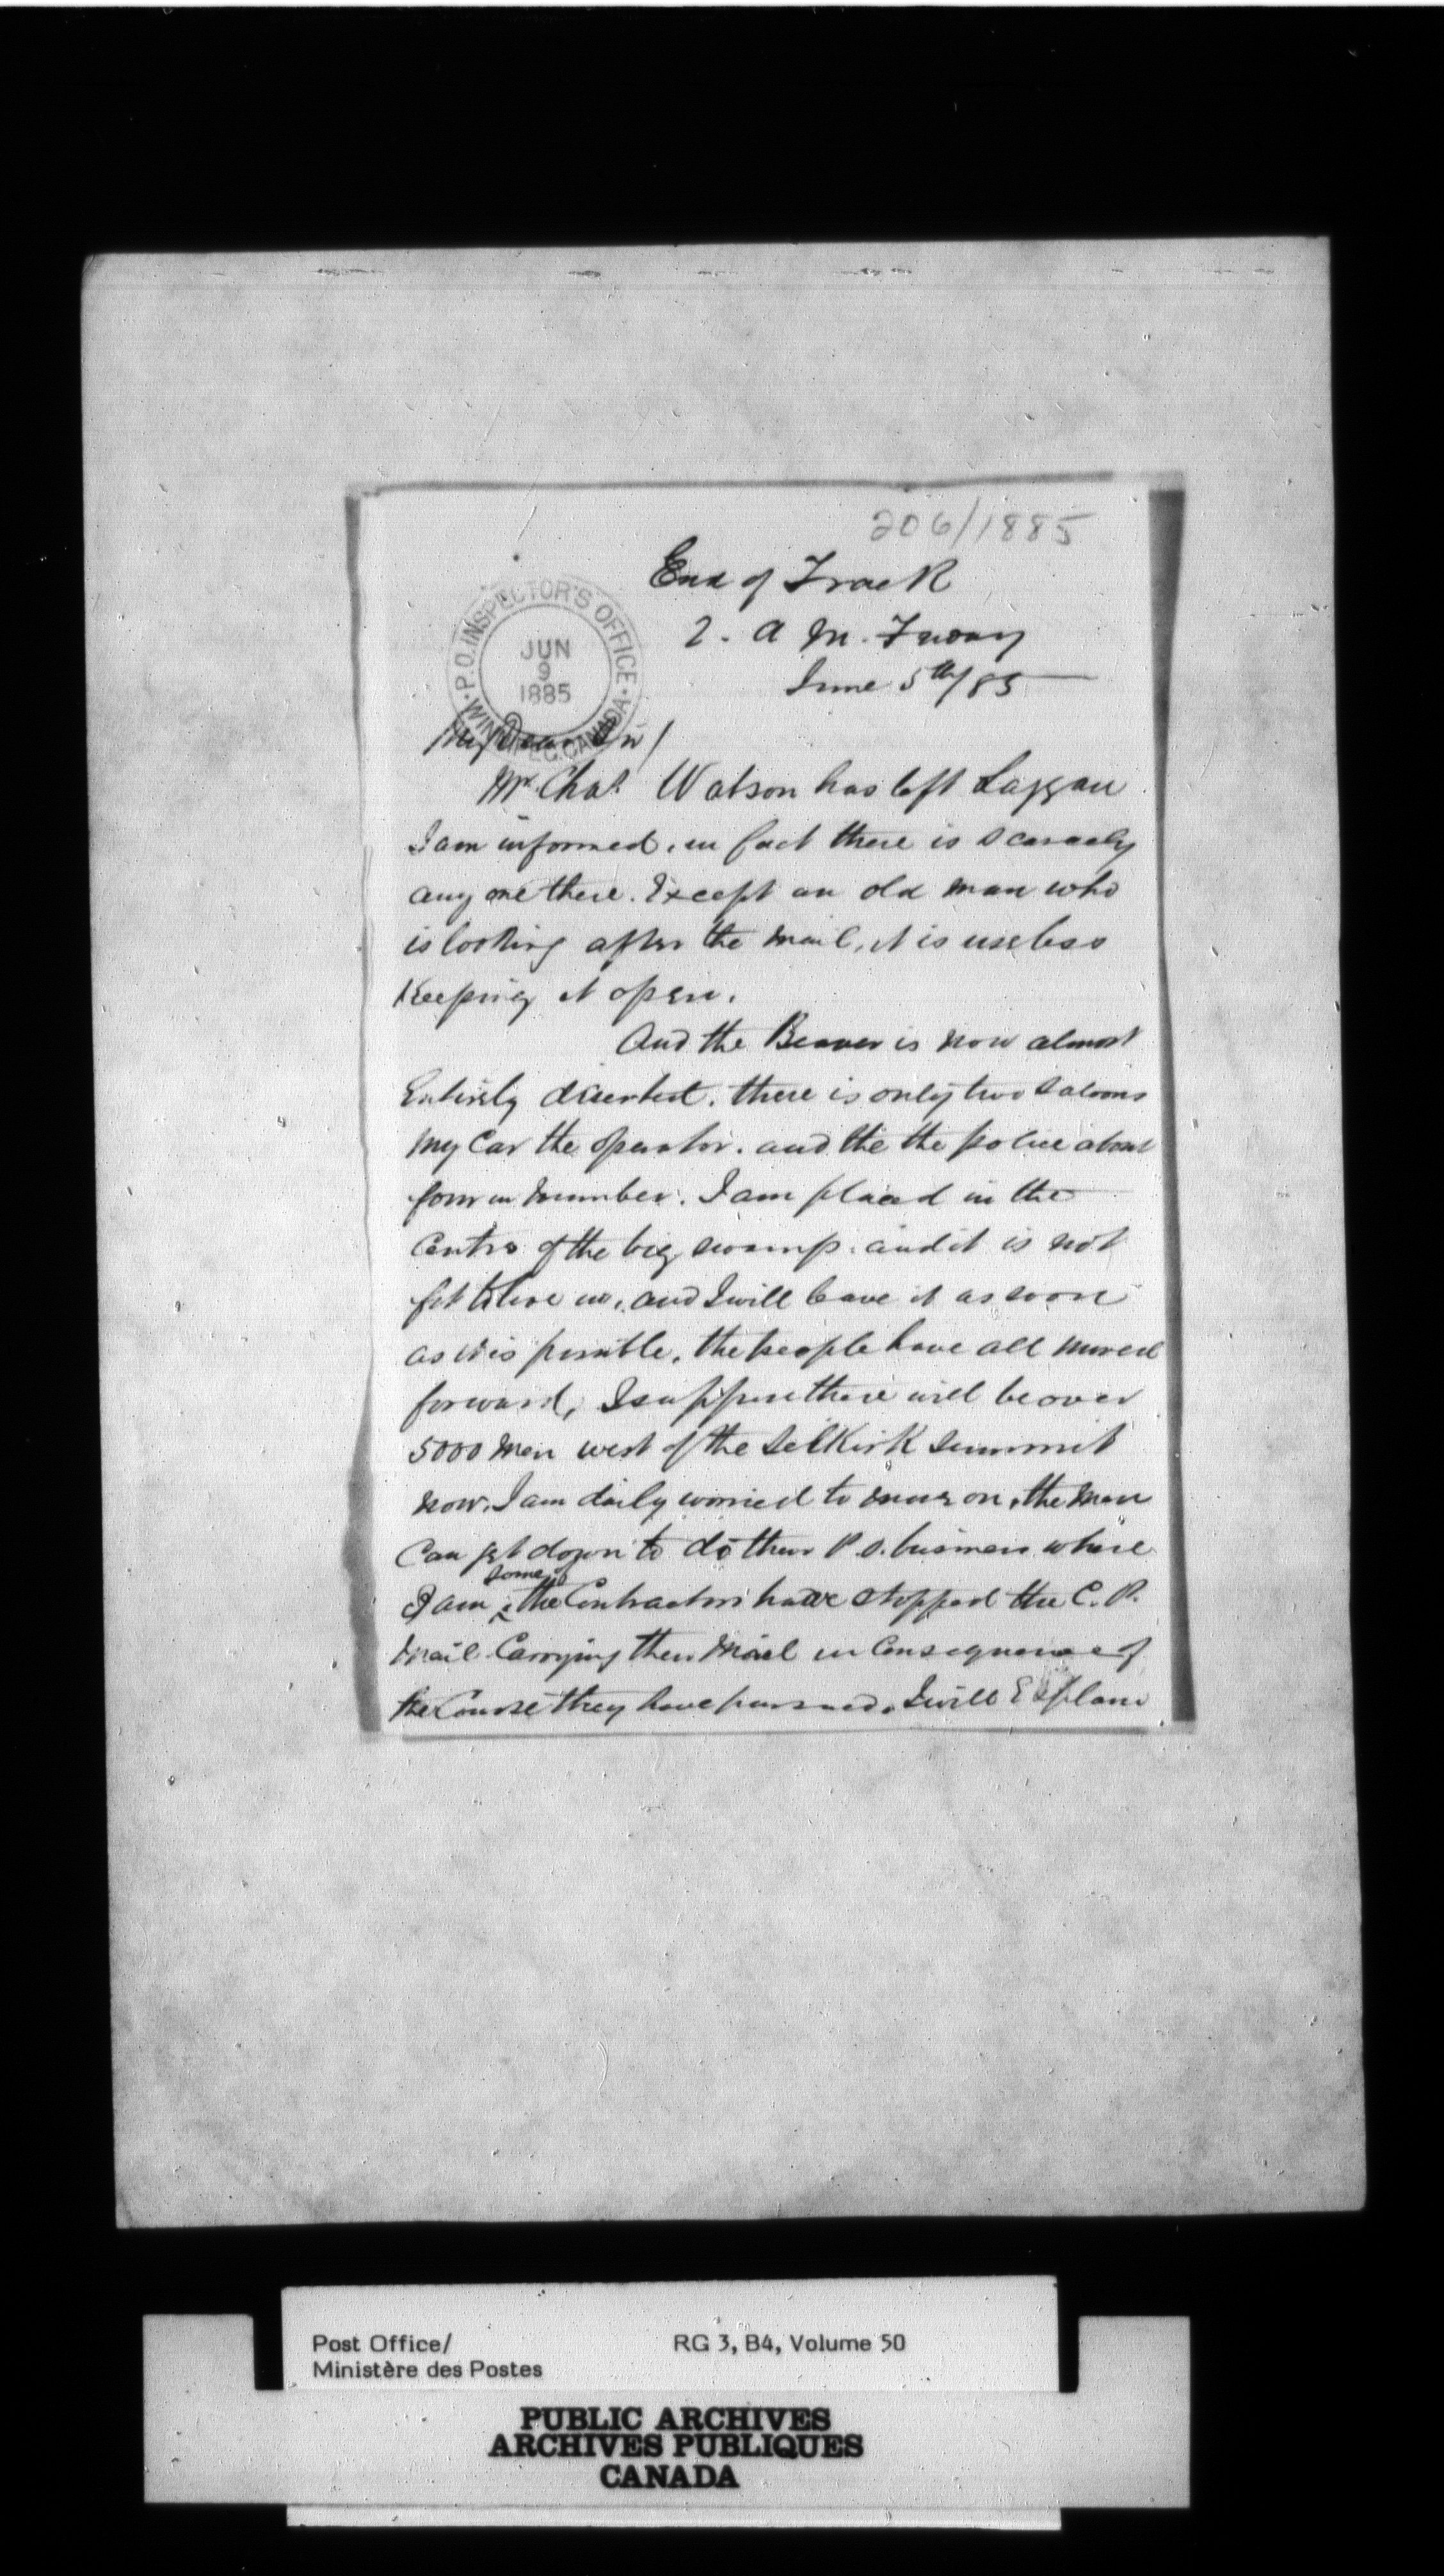 206/1885
End of Track
2. A M. Friday
June 5th/85
P.O. INSPECTOR'S OFFICE
WINNIPEG. CANADA
JUN
9
1885
My Dear Sir/
Mr. Chas. Watson has left Laggan
I am informed, in fact there is scarcely
any one there. Except an old man who
is looking after the mail, it is useless
Keeping it open.
And the Beaver is now almost
Entirely deserted. there is only two saloons
my Car the operator. and the the police about
four in number. I am placed in the
Centre of the big swamp. and it is not
fit to live in, and I will leave it as soon
as it is possible, the people have all moved
forward, I suppose there will be over
5000 men west of the Selkirk summit
now. I am daily worried to move on, the men
Can get down to do their P.O. business where
I am, some of the Contractors have stopped the C.P.
Mail Carrying their Mail in Consequence of
the Course they have pursued. I will Explain
Post Office/
Ministère des Postes
RG 3, B4, Volume 50
PUBLIC ARCHIVES
ARCHIVES PUBLIQUES
CANADA